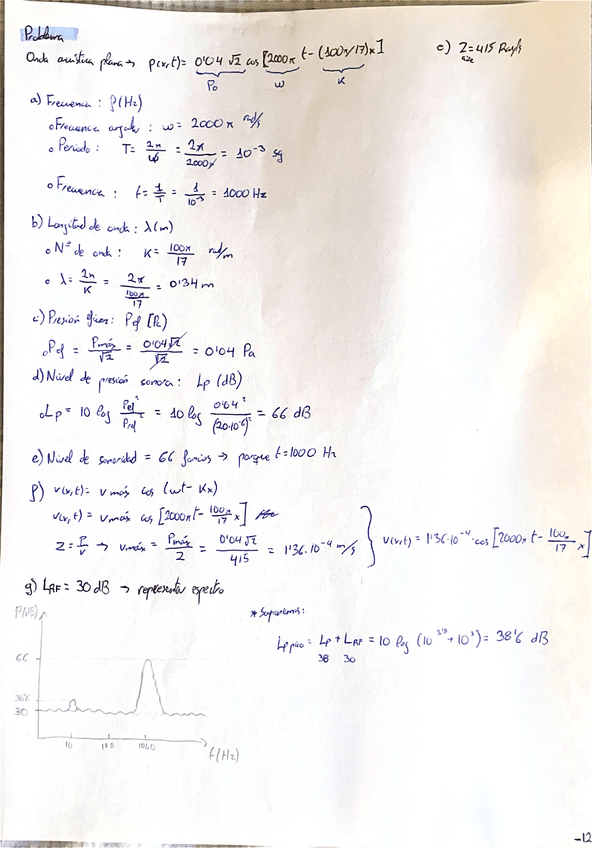 Problema
Onda acústica plana → p(x,t) = 0'04 √2 cos [2000π t - (100π/17)x]
P₀ ω K
e) Z = 415 Rayls
aire
a) Frecuencia: f(Hz)
o Frecuencia angular: ω = 2000π rad/s
o Periodo: T = 2π/ω = 2π/2000π = 10⁻³ sg
o Frecuencia: f = 1/T = 1/10⁻³ = 1000 Hz
b) Longitud de onda: λ(m)
o Nº de onda: K = 100π/17 rad/m
o λ = 2π/K = 2π/(100π/17) = 0'34 m
c) Presión eficaz: Pef [Pa]
o Pef = Pmáx/√2 = 0'04√2/√2 = 0'04 Pa
d) Nivel de presión sonora: Lp (dB)
o Lp = 10 log Pef²/Pref² = 10 log 0'04²/(20·10⁻⁶)² = 66 dB
e) Nivel de sonoridad = 66 fonios → porque f=1000 Hz
f) v(x,t) = v máx cos (ωt - Kx)
v(x,t) = v máx cos [2000πt - 100π/17 x]
Z = P/v → vmáx = Pmáx/Z = 0'04√2/415 = 1'36·10⁻⁴ m/s
v(x,t) = 1'36·10⁻⁴·cos [2000π t - 100π/17 x]
g) LRF = 30 dB → representar espectro
* Suponemos:
Lp pico = Lp + LRF = 10 log (10³'⁸ + 10³) = 38'6 dB
38 30
P(dB)
66
38'6
30
10 100 1000
f(Hz)
-12